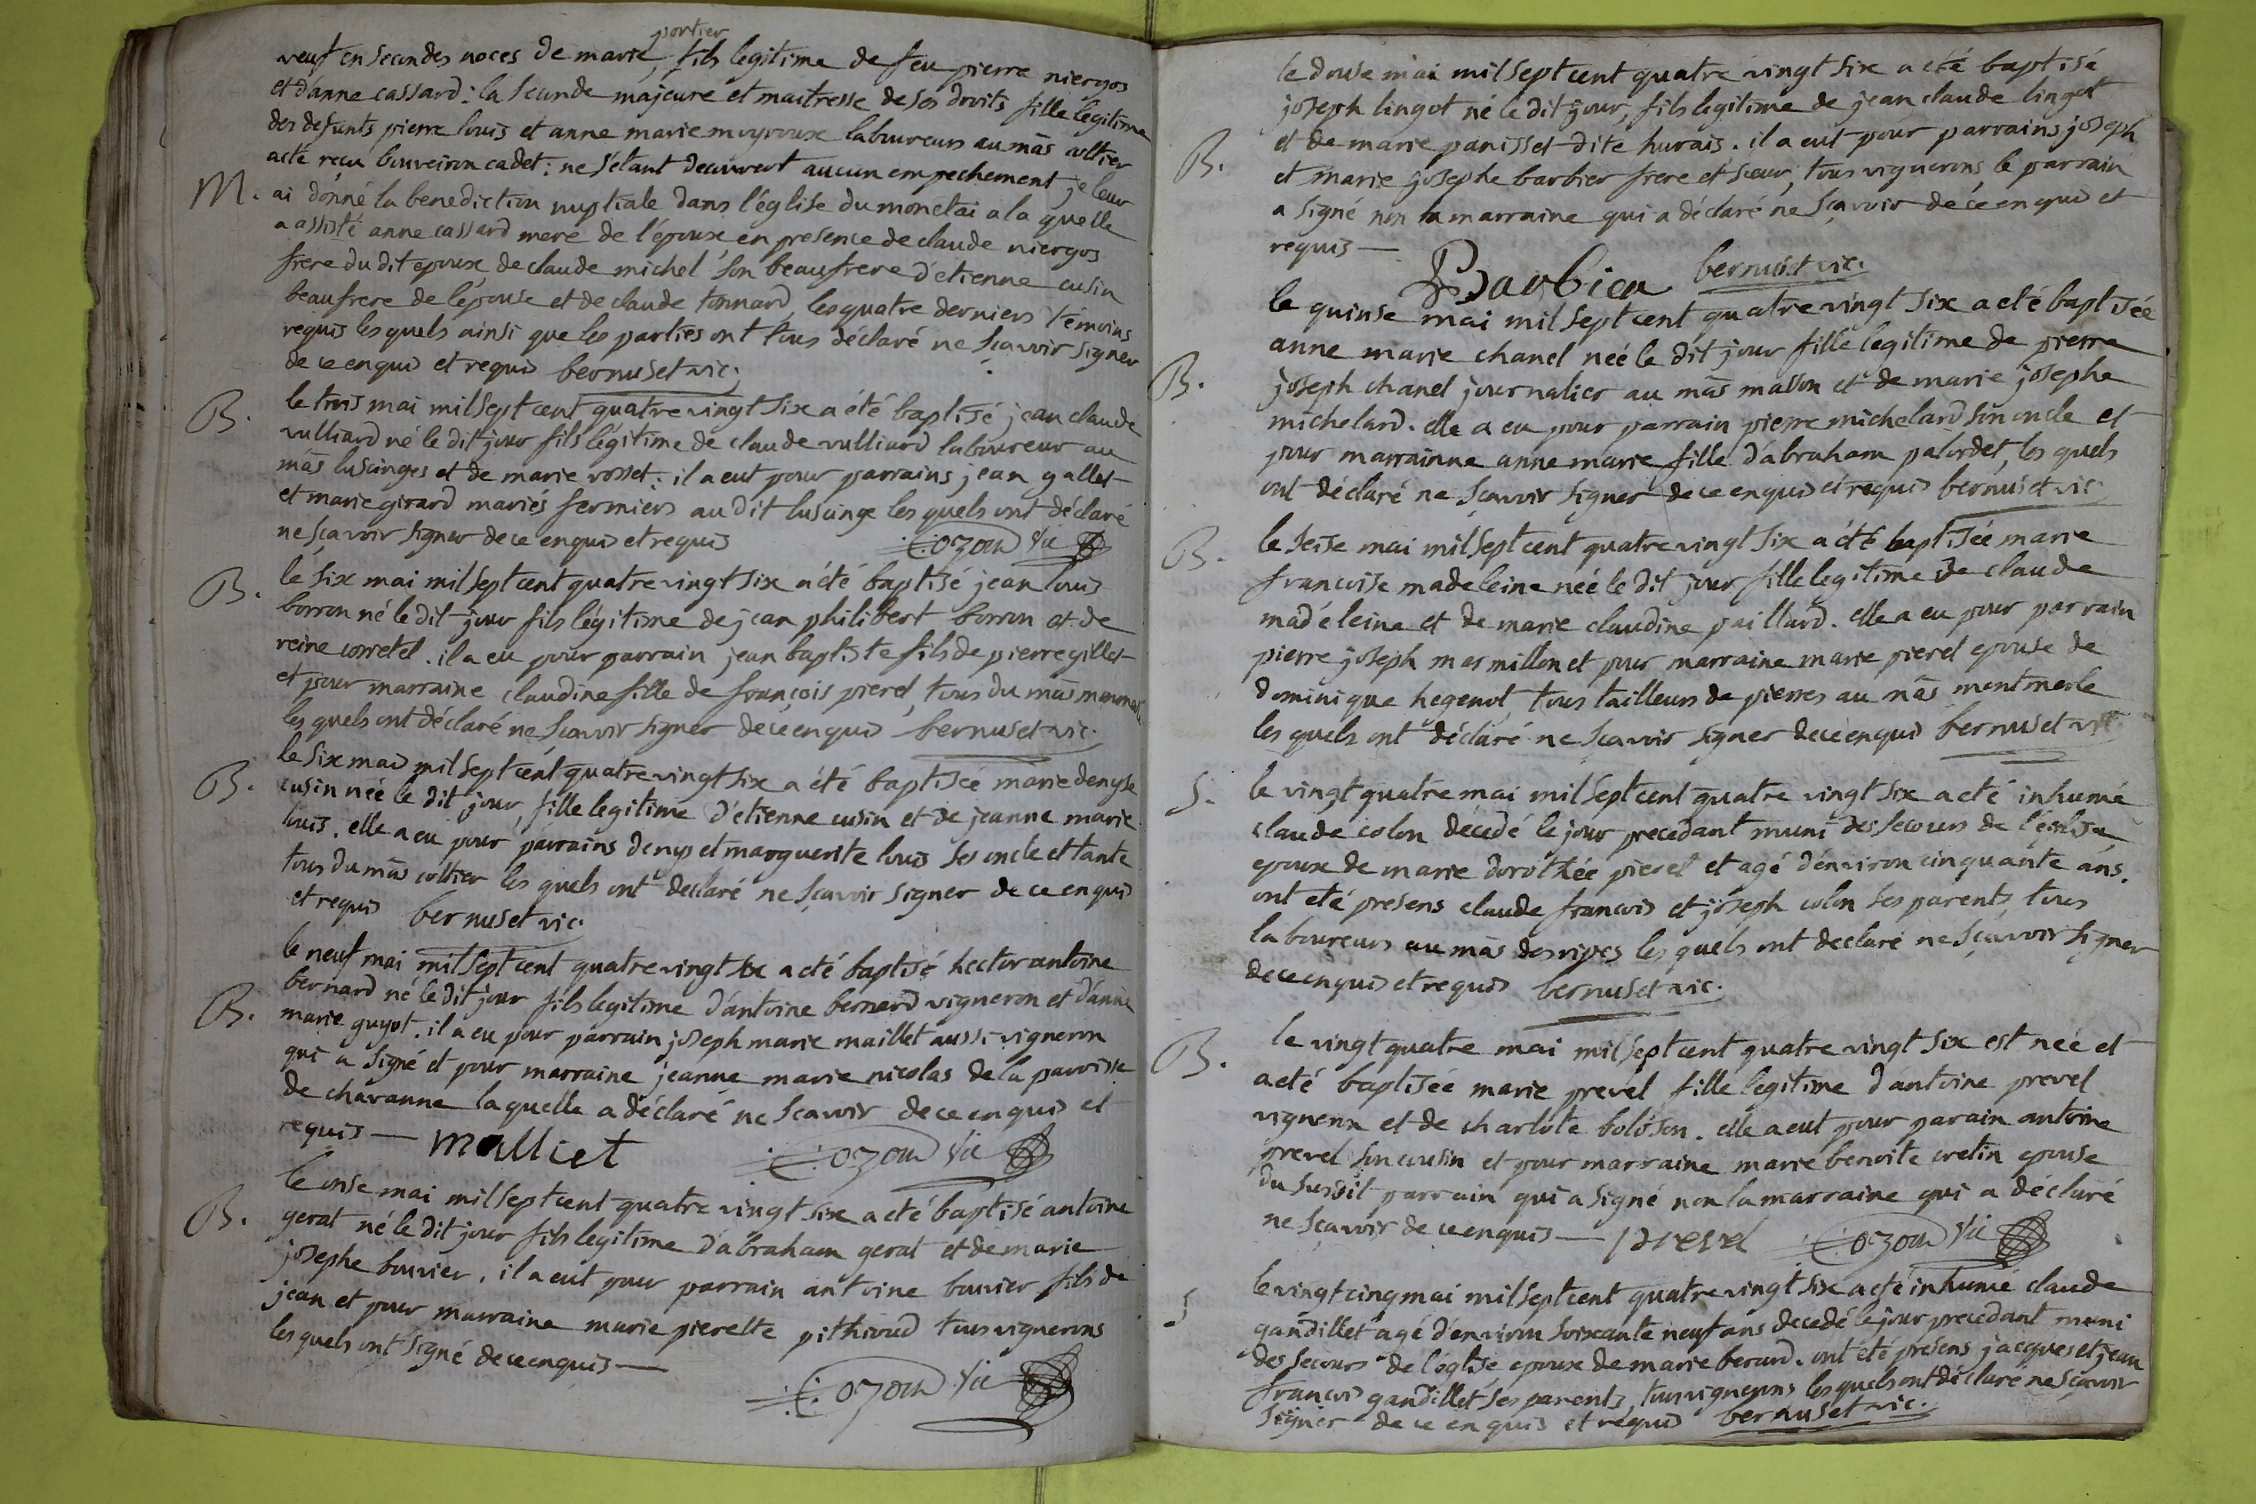 portier
veuf en secondes noces de marie, fils legitime de feu pierre niergos
et d'anne cassard: la seconde majeure et maitresse de ses droits fille légitime
des defunts pierre louis et anne marie moyroux laboureurs au mâs coltier
acte reçu bouveiron cadet: ne s'étant decouvert aucun empechement je leur
M. ai donné la benediction nuptiale dans l'église du monetai a la quelle
a assisté anne cassard mere de l'époux en presence de claude niergos
frere du dit epoux de claude michel son beaufrere d'etienne cusin
beaufrere de l'épouse et de claude tonnard, les quatre derniers témoins
requis les quels ainsi que les parties ont tous déclaré ne sçavoir signer
de ce enquis et requis bernuset vic.
B. le trois mai mil sept cent quatre vingt six a été baptisé jean claude
vulliard né le dit jour fils légitime de claude vulliard laboureur au
mâs lusinges et de marie rosset: il a eut pour parrains jean gallet
et marie girard mariés fermiers au dit lusinge les quels ont déclaré
ne sçavoir signer de ce enquis et requis Cozon vic
B. le six mai mil sept cent quatre vingt six a été baptisé jean louis
borron né le dit jour fils légitime de jean philibert borron et de
reine corretel. il a eu pour parrain jean baptiste fils de pierre gillet
et pour marraine claudine fille de françois pierel, tous du mâs
les quels ont déclaré ne sçavoir signer de ce enquis bernuset vic.
B. le six mai mil sept cent quatre vingt six a été baptisée marie denyse
cusin née le dit jour, fille legitime d'étienne cusin et de jeanne marie
louis. elle a eu pour parrains denys et marguerite louis ses oncle et tante
tous du mâs coltier les quels ont declaré ne sçavoir signer de ce enquis
et requis bernuset vic.
le neuf mai mil sept cent quatre vingt six a été baptisé hector antoine
B. bernard né le dit jour fils legitime d'antoine bernard vigneron et d'anne
marie guyot. il a eu pour parrain joseph marie maillet aussi vigneron
qui a signé et pour marraine jeanne marie nicolas de la parroisse
de charanne laquelle a déclaré ne scavoir de ce enquis et
requis — Malliet Cozon vic
B. le onse mai mil sept cent quatre vingt six a été baptisé antoine
gerat né le dit jour fils legitime d'abraham gerat et de marie
josephe bouvier. il a eut pour parrain antoine bouvier fils de
jean et pour marraine marie pierette pithioud tous vignerons
les quels ont signé de ce enquis —
Cozon vic
le douse mai mil sept cent quatre vingt six a été baptisé
joseph lingot né le dit jour, fils legitime de jean claude lingot
B. et de marie panisset dite hurais. il a eut pour parrains joseph
et marie josephe barbier frere et soeur, tous vignerons, le parrain
a signé non la marraine qui a déclaré ne sçavoir de ce enquis et
requis —
Barbier bernuset vic.
le quinse mai mil sept cent quatre vingt six a été baptisée
anne marie chanel née le dit jour fille legitime de pierre
B. joseph chanel journalier au mâs masson et de marie josephe
michelard. elle a eu pour parrain pierre michelard son oncle et
pour marrainne anne marie fille d'abraham palordet, les quels
ont déclaré ne sçavoir signer de ce enquis et requis bernuset vic
B. le seise mai mil sept cent quatre vingt six a été baptisée marie
francoise madeleine née le dit jour fille legitime de claude
madéleine et de marie claudine paillard. elle a eu pour parrain
pierre joseph marmillon et pour marraine marie pierel epouse de
dominique hegenot, tous tailleurs de pierres au mâs montmerle
les quels ont déclaré ne sçavoir signer de ce enquis bernuset vic
S. le vingt quatre mai mil sept cent quatre vingt six a été inhumé
claude colon décédé le jour precedant muni des secours de l'église
epoux de marie dorothée pierel et agé d'environ cinquante ans.
ont été presens claude francois et joseph colon ses parents, tous
laboureurs au mâs des rippes les quels ont declaré ne sçavoir signer
de ce enquis et requis bernuset vic.
le vingt quatre mai mil sept cent quatre vingt six est née et
B. a été baptisée marie prevel fille legitime d'antoine prevel
vigneron et de charlote boloson. elle a eut pour parain antoine
prevel son cousin et pour marraine marie benoite cretin epouse
du susdit parrain qui a signé non la marraine qui a déclaré
ne sçavoir de ce enquis — prevel Cozon vic
S le vingt cinq mai mil sept cent quatre vingt six a été inhumé claude
gandillet agé d'environ soixante neuf ans decedé le jour precedant muni
des secours de l'église epoux de marie berard. ont été présens jacques et jean
francois gandillet ses parents, tous vignerons les quels ont déclaré ne sçavoir
signer de ce enquis et requis bernuset vic.